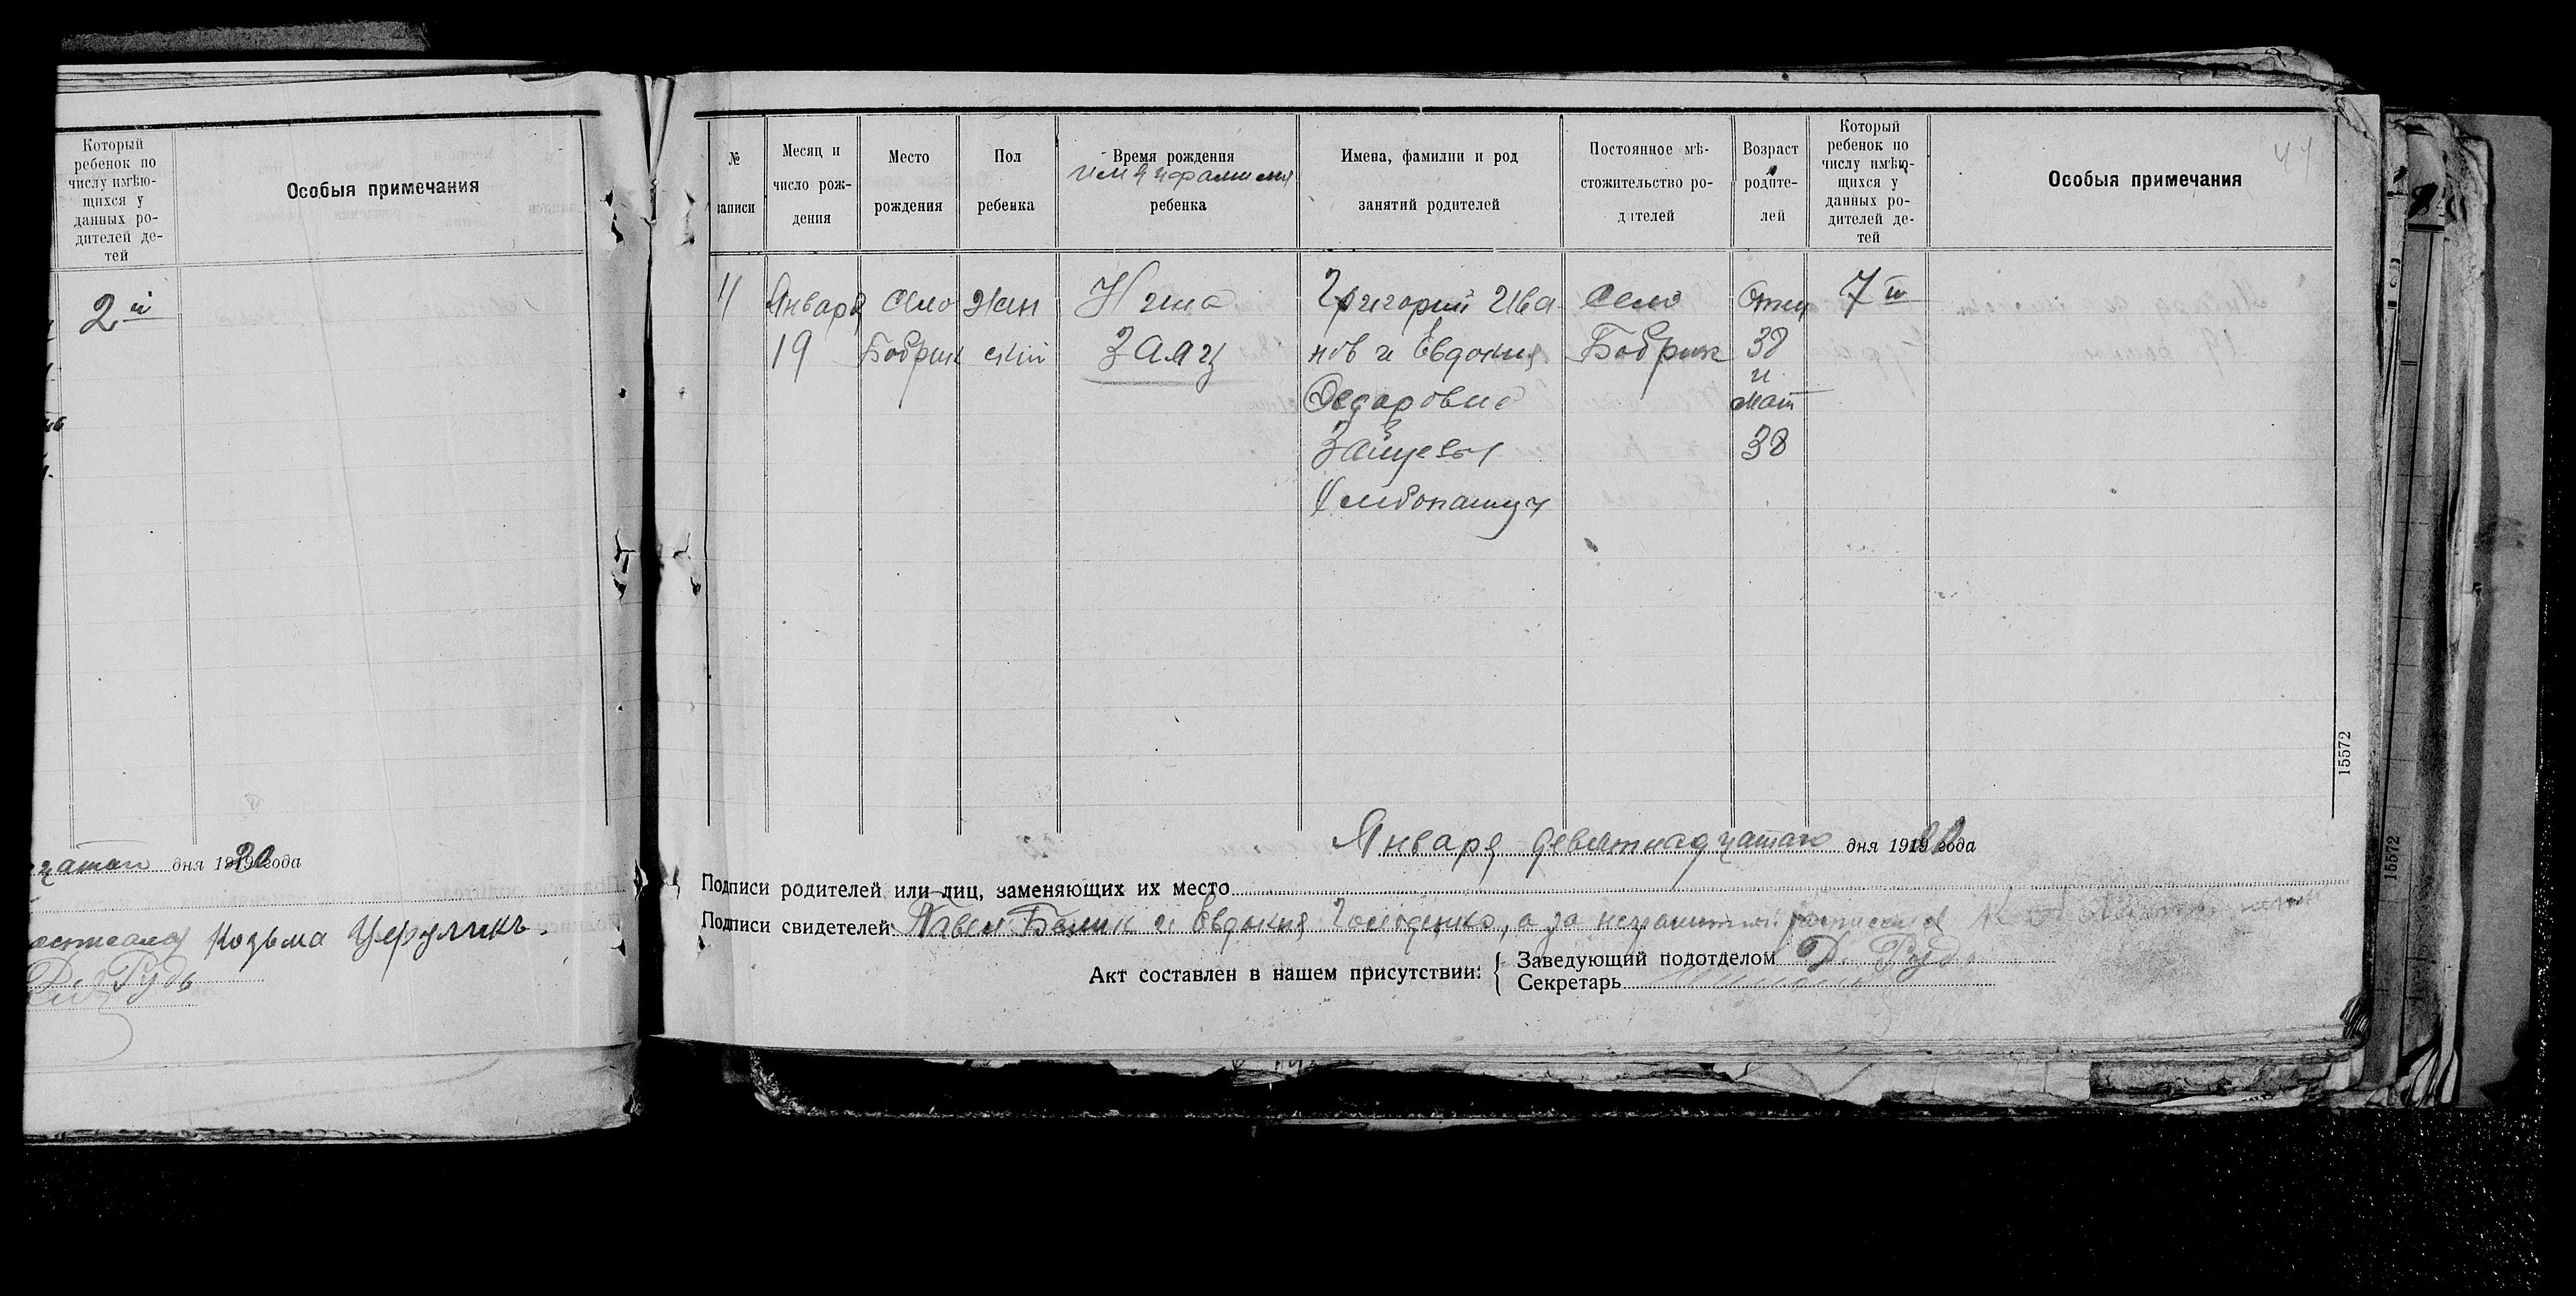 Который
ребенок по
числу имѣю-
щихся у
данных ро-
дителей де-
тей
Особыя примечания
2й
дня 1920 года
Козьма Церуликъ.
Рудь
44
№
записи
Месяц и
число рож-
дения
Место
рождения
Пол
ребенка
Время рождения
имя и фамилия
ребенка
Имена, фамилии и род
занятий родителей
Постоянное мѣ-
стожительство ро-
дителей
Возраст
родите-
лей
Который
ребенок по
числу имѣю-
щихся у
данных ро-
дителей де-
тей
Особыя примечания
Января
19
село
Бобрик
жен
ский
Нина
Заяц
Григорий Ива
нов и Евдокия
Федоровна
Зайцевы
Хлебопашцы
Село
Бобрик
Отец
38
и
мат
38
7й
15572
15572
Января девятнадцатаго дня 1919 года
Подписи родителей или лиц, заменяющих их место
Подписи свидетелей Павел Белик и Евдокия Голоденко, а за неграмотных расписался
Акт составлен в нашем присутствии: Заведующий подотделом Д. Рудь
Секретарь